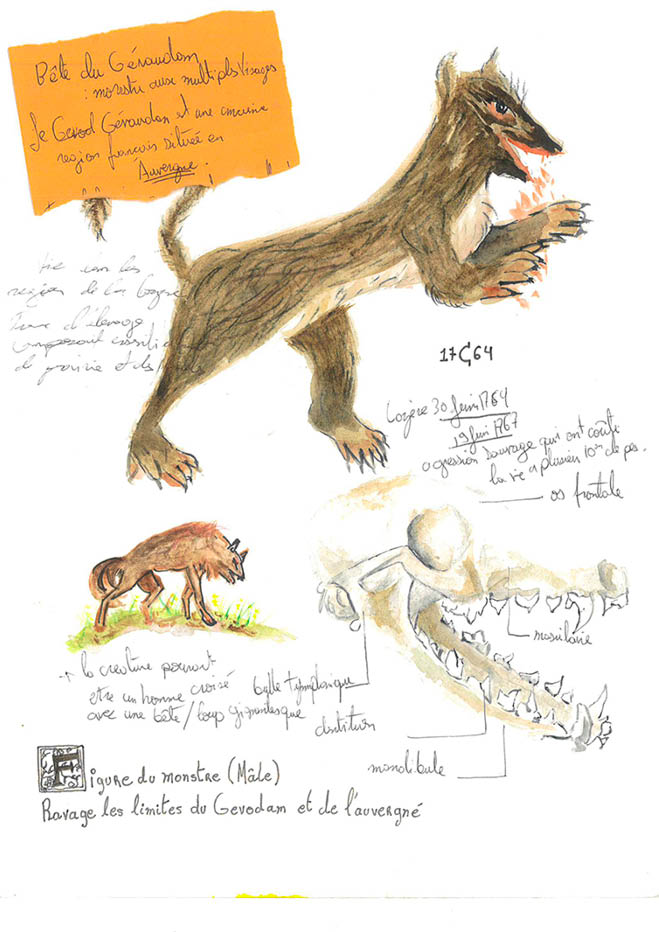 Bête du Gévaudan
: monstre aux multiples visages
Le Gevod Gévaudan est une ancienne
region francais située en
Auvergne
les
region de la
d'élevage
et
17G64
Lozère 30 Juin 1764
19 Juin 1767
agression sauvage qui ont coûté
la vie a plusieur 10ne de pes.
os frontale
maxilaire
la creature pourrait
etre un homme croisé
avec une bête/loup gigantesque
bulle tympanique
dentition
mandibule
Figure du monstre (Mâle)
Ravage les limites du Gevodam et de l'auvergné